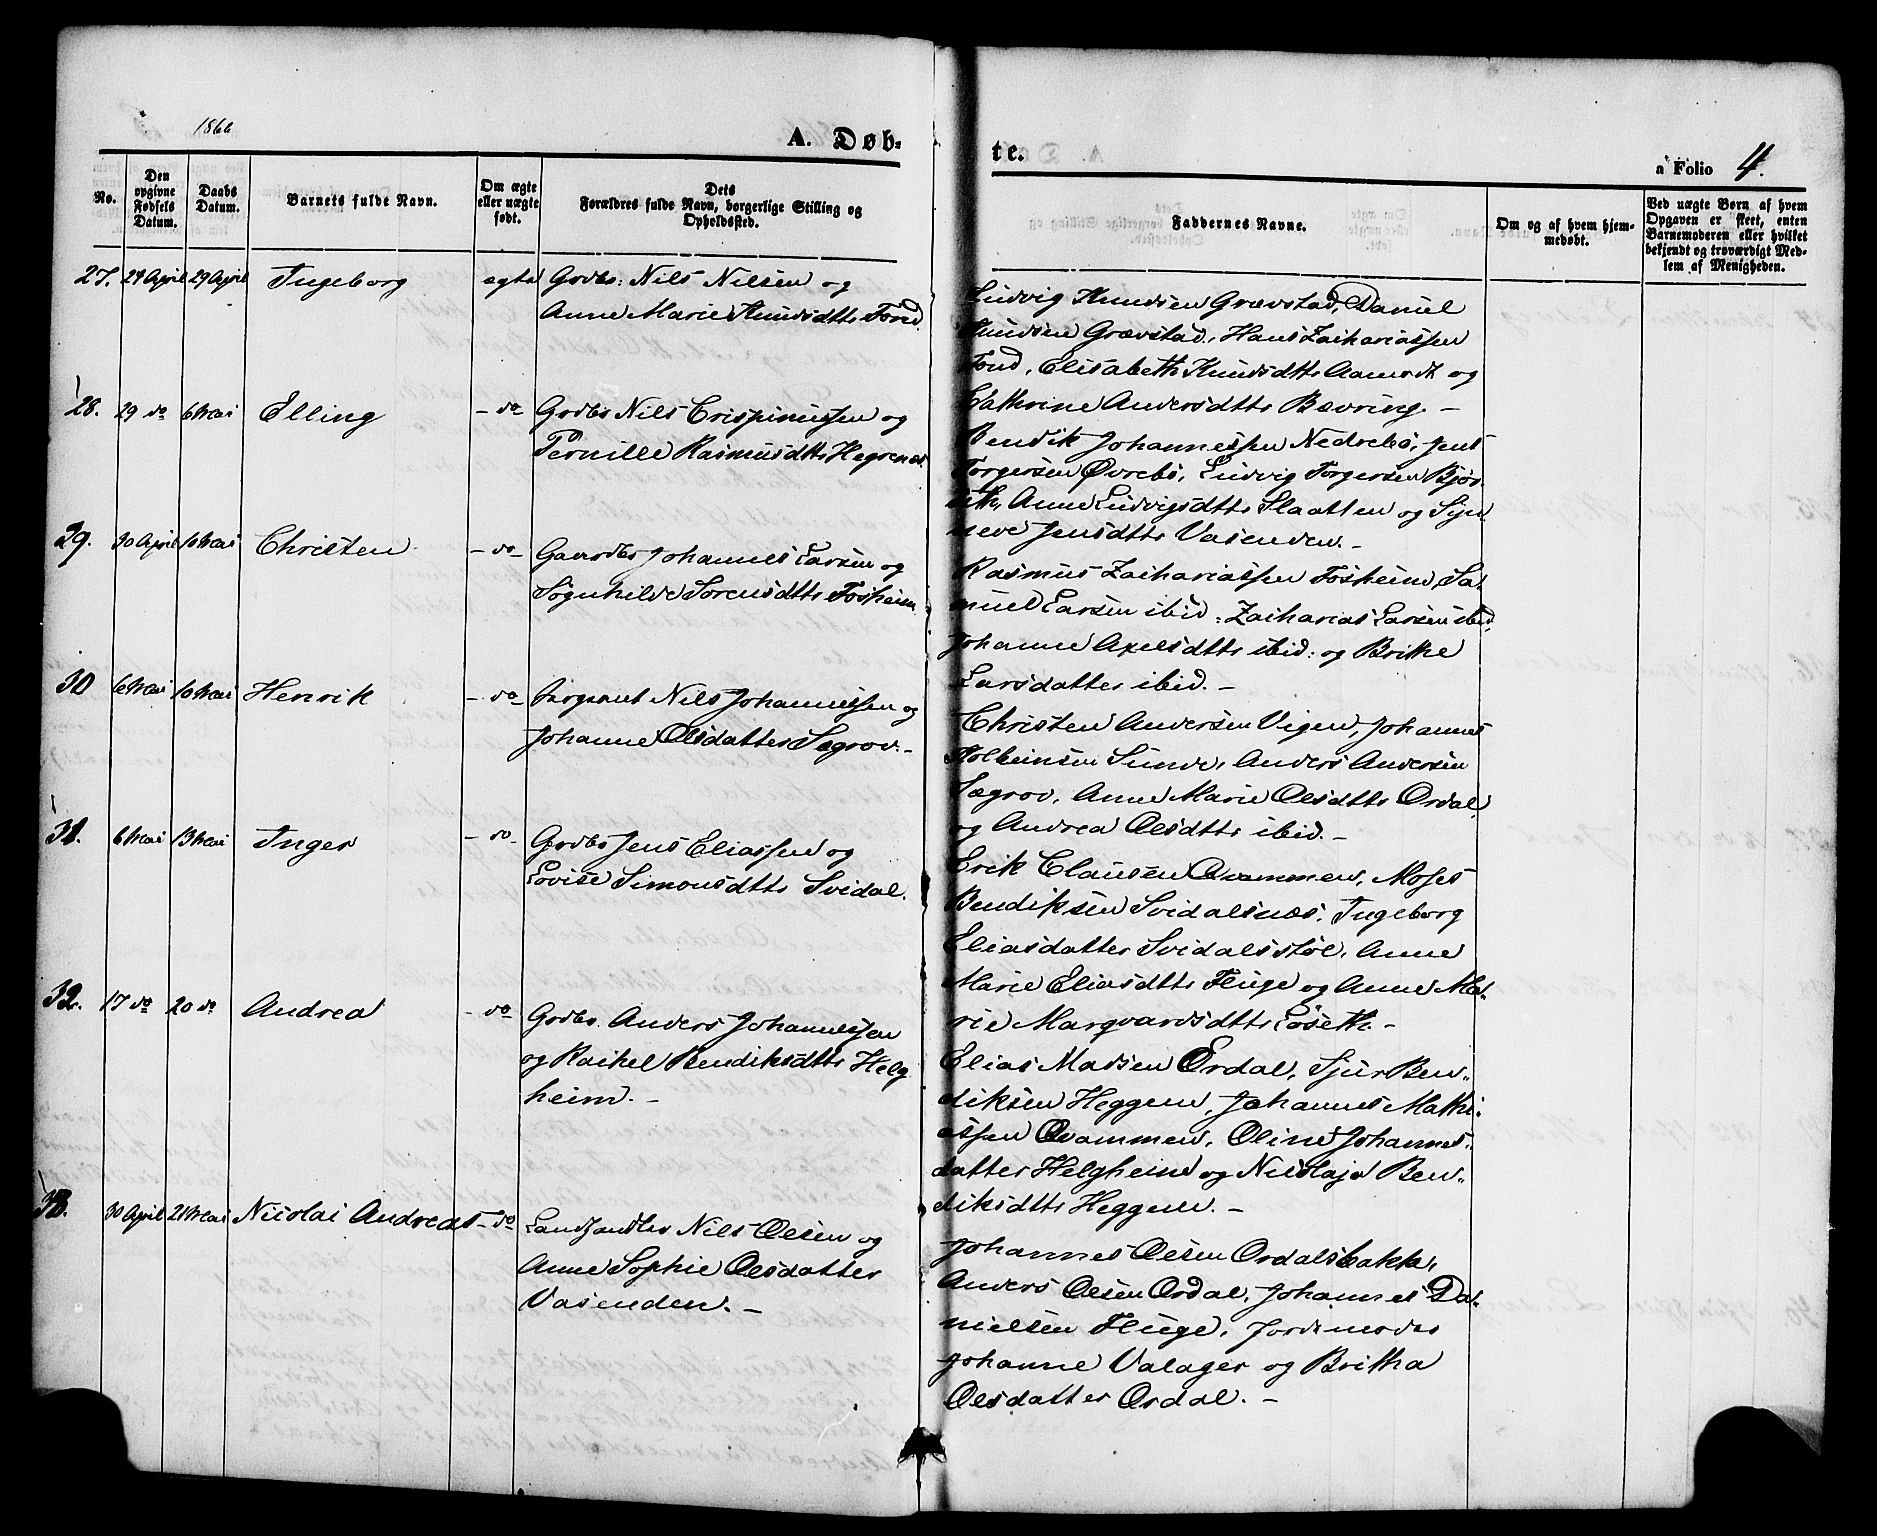 1866
A. Døb-
No.
Den opgivne Fødsels Datum.
Daabs Datum.
Barnets fulde Navn.
Om ægte eller uægte født.
Dets Forældres fulde Navn, borgerlige Stilling og Opholdssted.
27. 24 April 29 April Ingeborg ægte Grdbr: Nils Nilsen og
Anne Marie Knudsdttr Fond.
28. 29 do 6 Mai Elling - do Grdbr Nils Crispinussen og
Pernille Rasmusdttr Hegrenæs.
29. 30 April 10 Mai Christen - do - Gaardbr Johannes Larsen og
Søgnhilde Sørensdttr Fosheim.
30 6 Mai 10 Mai Henrik - do Sergeant Nils Johannessen og
Johanne Olsdatter Sægrov. -
31. 6 Mai 13 Mai Inger - do Grdbr Jens Eliassen og
Lovise Simonsdttr Svidal.
32. 17 do 20 do Andrea - do Grdbr. Anders Johannessen
og Rachel Bendiksdttr Helg
heim. -
33. 30 April 21 Mai Nicolai Andreas - do Landhandler Nils Olsen og
Anne Sophie Olsdatter
Vasenden. -
te.
a Folio 4.
Faddernes Navne.
Om og af hvem hjem-
medøbt.
Ved uægte Børn af hvem
Opgaven er skeet, enten
Barnemoderen eller hvilket
bekjendt og troværdigt Med-
lem af Menigheden.
Ludvig Knudsen Grævstad, Daniel
Knudsen Grævstad, Hans Zachariassen
Fond, Elisabeth Knudsdttr Aamodt og
Cathrine Andersdttr Bævring. -
Bendik Johannessen Nedrebø, Jens
Torgersen Øvrebø, Ludvig Torgersen Bjør-
seth, Anne Ludvigsdttr Slaatten og Syn-
neve Jensdttr Vasenden. -
Rasmus Zachariassen Fosheim, Sa-
muel Larsen ibid: Zacharias Larsen ibid,
Johanne Axelsdttr ibid: og Brithe
Larsdatter ibid. -
Christen Andersen Vigen, Johannes
Kolbeinsen Sunde, Anders Andersen
Sægrov, Anne Marie Olsdttr Ordal,
og Andrea Olsdttr ibid. -
Erik Clausen Qvammen, Moses
Bendiksen Svidalsnæs, Ingeborg
Eliasdatter Svidalsstøl, Anne
Marie Eliasdttr Fluge og Anne Ma-
rie Marqvardsdttr Løseth. -
Elias Madsen Ordal, Sjur Ben-
diksen Heggem, Johannes Mathi-
assen Qvammen, Oline Johannes-
datter Helgheim og Nicolaja Ben-
diksdttr Heggem. -
Johannes Olsen Ordalsbakk,
Anders Olsen Ordal, Johannes Da-
nielsen Fluge, Jordemoder
Johanne Valager og Britha
Olsdatter Ordal. -